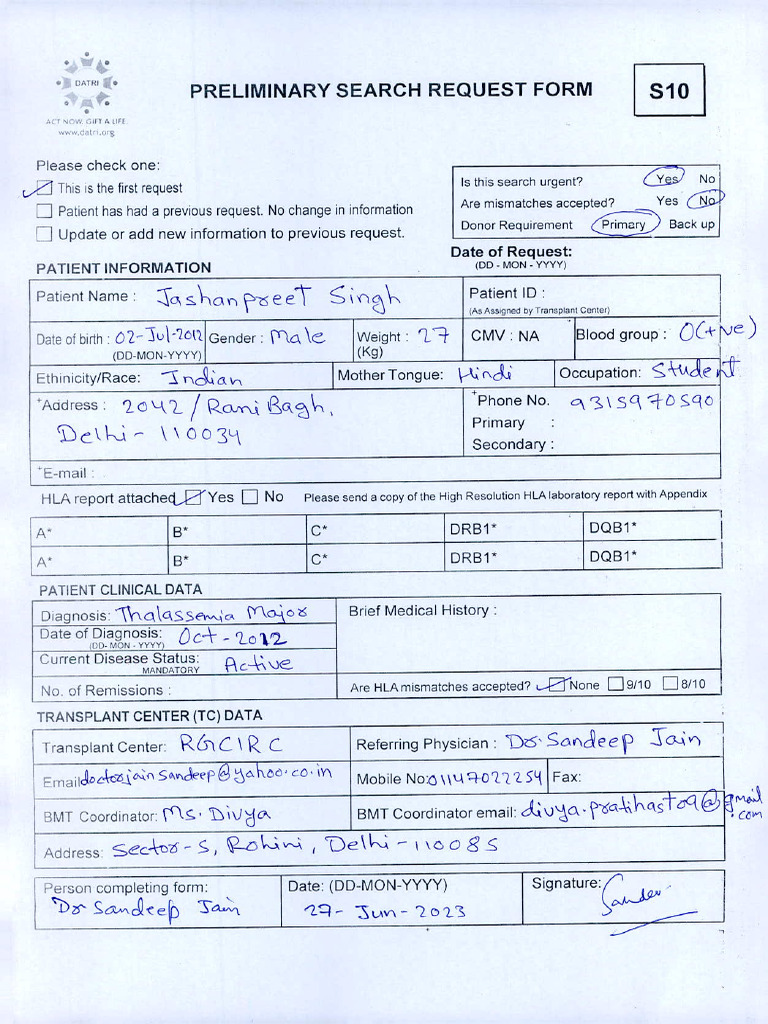 DATRI
ACT NOW. GIFT A LIFE.
www.datri.org
PRELIMINARY SEARCH REQUEST FORM
S10
Please check one:
This is the first request
Patient has had a previous request. No change in information
Update or add new information to previous request.
Is this search urgent? Yes No
Are mismatches accepted? Yes No
Donor Requirement Primary Back up
Date of Request:
(DD - MON - YYYY)
PATIENT INFORMATION
Patient Name : Jashanpreet Singh
Patient ID :
(As Assigned by Transplant Center)
Date of birth : 02-Jul-2012 Gender : Male Weight : 27 CMV : NA Blood group : O(+ve)
(DD-MON-YYYY) (Kg)
Ethinicity/Race: Indian Mother Tongue: Hindi Occupation: Student
+Address : 2042/Rani Bagh,
Delhi- 110034
+Phone No. 9315970590
Primary :
Secondary :
+E-mail :
HLA report attached Yes No Please send a copy of the High Resolution HLA laboratory report with Appendix
A* B* C* DRB1* DQB1*
A* B* C* DRB1* DQB1*
PATIENT CLINICAL DATA
Diagnosis: Thalassemia Major
Date of Diagnosis: Oct-2012
(DD- MON - YYYY)
Current Disease Status: Active
MANDATORY
No. of Remissions :
Brief Medical History :
Are HLA mismatches accepted? None 9/10 8/10
TRANSPLANT CENTER (TC) DATA
Transplant Center: RGCIRC Referring Physician : Dr. Sandeep Jain
Email doctorjainsandeep@yahoo.co.in Mobile No: 01147022254 Fax:
BMT Coordinator: Ms. Divya BMT Coordinator email: divya.pratihast09@gmail.com
Address: Sector-5, Rohini, Delhi-110085
Person completing form: Date: (DD-MON-YYYY) Signature:
Dr Sandeep Jain 27- Jun-2023